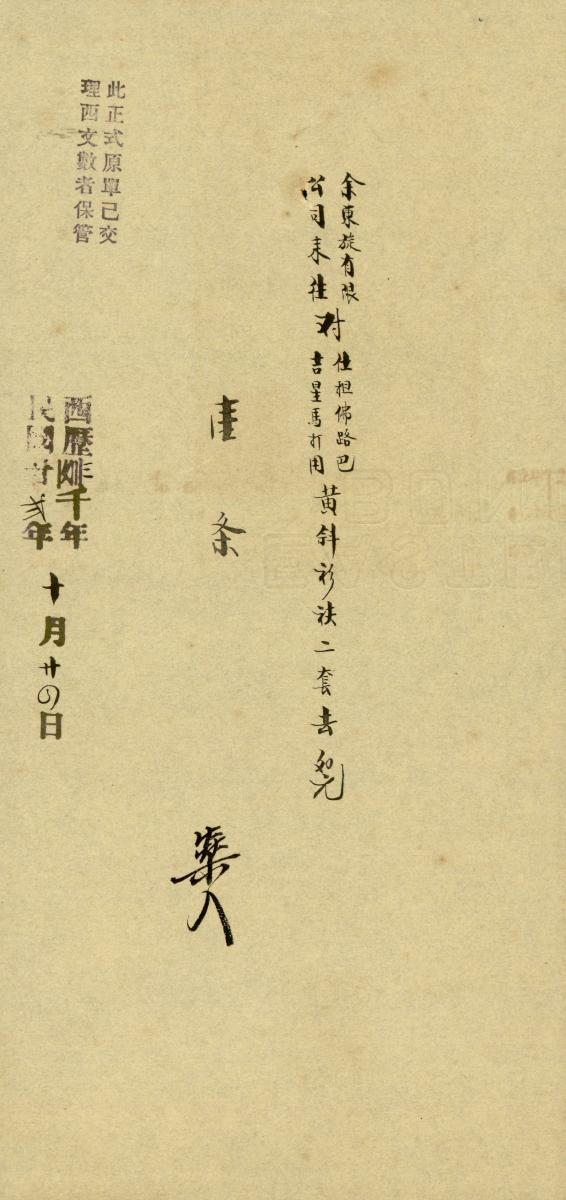 余東旋有限
公司來往
对
仕担佛路巴
吉星馬打用
黃斜衫袂二套去
條
此正式原單已交
理西文數者保管
西歷 千年
民國廿弍年
十月廿四日